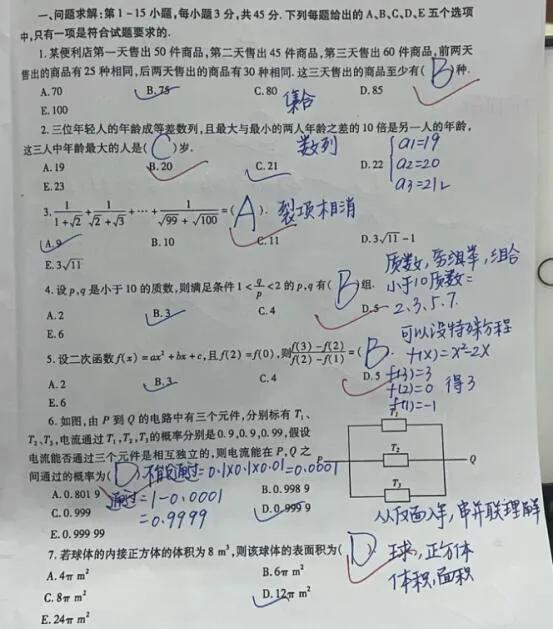 一、问题求解:第1-15小题,每小题3分,共45分.下列每题给出的A、B、C、D、E五个选项
中,只有一项是符合试题要求的.
1.某便利店第一天售出50件商品,第二天售出45件商品,第三天售出60件商品,前两天
售出的商品有25种相同,后两天售出的商品有30种相同.这三天售出的商品至少有(B)种.
A.70 B.75 C.80 D.85
E.100
集合
2.三位年轻人的年龄成等差数列,且最大与最小的两人年龄之差的10倍是另一人的年龄,
这三人中年龄最大的人是(C)岁.
数列
A.19 B.20 C.21 D.22
E.23
a1=19
a2=20
a3=21
3. 1/(1+√2)+1/(√2+√3)+⋯+1/(√99+√100)=(A).
裂项相消
A.9 B.10 C.11 D.3√11-1
E.3√11
质数,穷组举,组合
4.设p,q是小于10的质数,则满足条件1<q/p<2的p,q有(B)组.
小于10质数=
2.3.5.7.
A.2 B.3 C.4 D.5
E.6
可以设特殊方程
5.设二次函数f(x)=ax²+bx+c,且f(2)=f(0),则(f(3)-f(2))/(f(2)-f(1))=(B.
f(x)=x²-2x
A.2 B.3 C.4 D.5
E.6
f(3)=3
f(2)=0 得3
f(1)=-1
6.如图,由P到Q的电路中有三个元件,分别标有T₁、
T₂、T₃,电流通过T₁、T₂、T₃的概率分别是0.9,0.9,0.99,假设
电流能否通过三个元件是相互独立的,则电流能在P、Q之
间通过的概率为(D)
不能通过=0.1×0.1×0.01=0.0001
A.0.801 9 B.0.998 9
通过=1-0.0001
C.0.999 D.0.999 9
=0.9999
E.0.999 99
T₁
T₂
T₃
P
Q
从反面入手,串并联理解
7.若球体的内接正方体的体积为8 m³,则该球体的表面积为(D.
球,正方体
体积,面积
A.4π m² B.6π m²
C.8π m² D.12π m²
E.24π m²